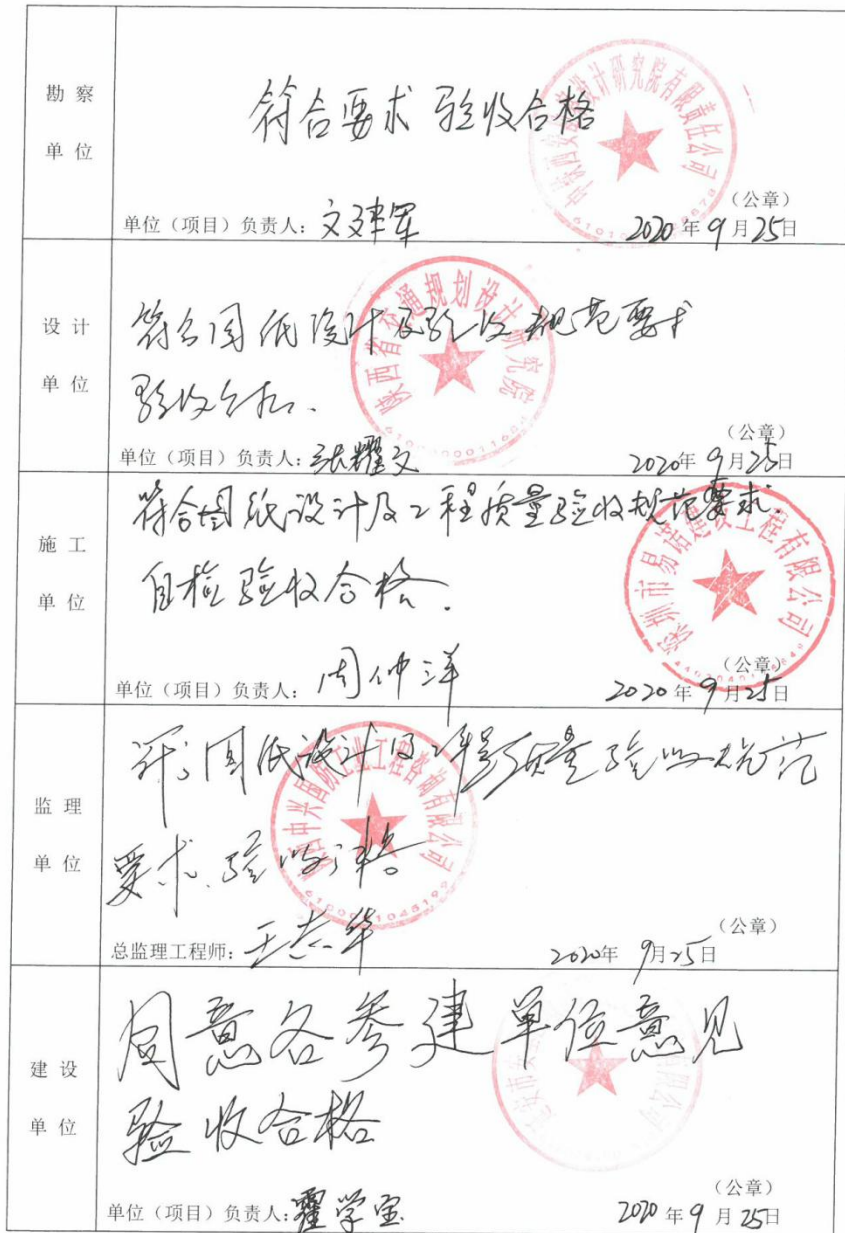 勘察
单位
符合要求 验收合格
(公章)
单位（项目）负责人：文建军
2020年9月25日
设计
单位
符合图纸设计及验收规范要求
验收合格.
陕西省交通规划设计研究院
(公章)
单位（项目）负责人：张耀文
2020年9月25日
施工
单位
符合图纸设计及工程质量验收规范要求.
自检验收合格.
深圳市易诺建设工程有限公司
(公章)
单位（项目）负责人：周仲洋
2020年9月25日
监理
单位
符合图纸设计及工程质量验收规范
要求.验收合格
(公章)
总监理工程师：王志华
2020年 9月25日
建设
单位
同意各参建单位意见
验收合格
(公章)
单位（项目）负责人：霍学宝
2020年9月25日